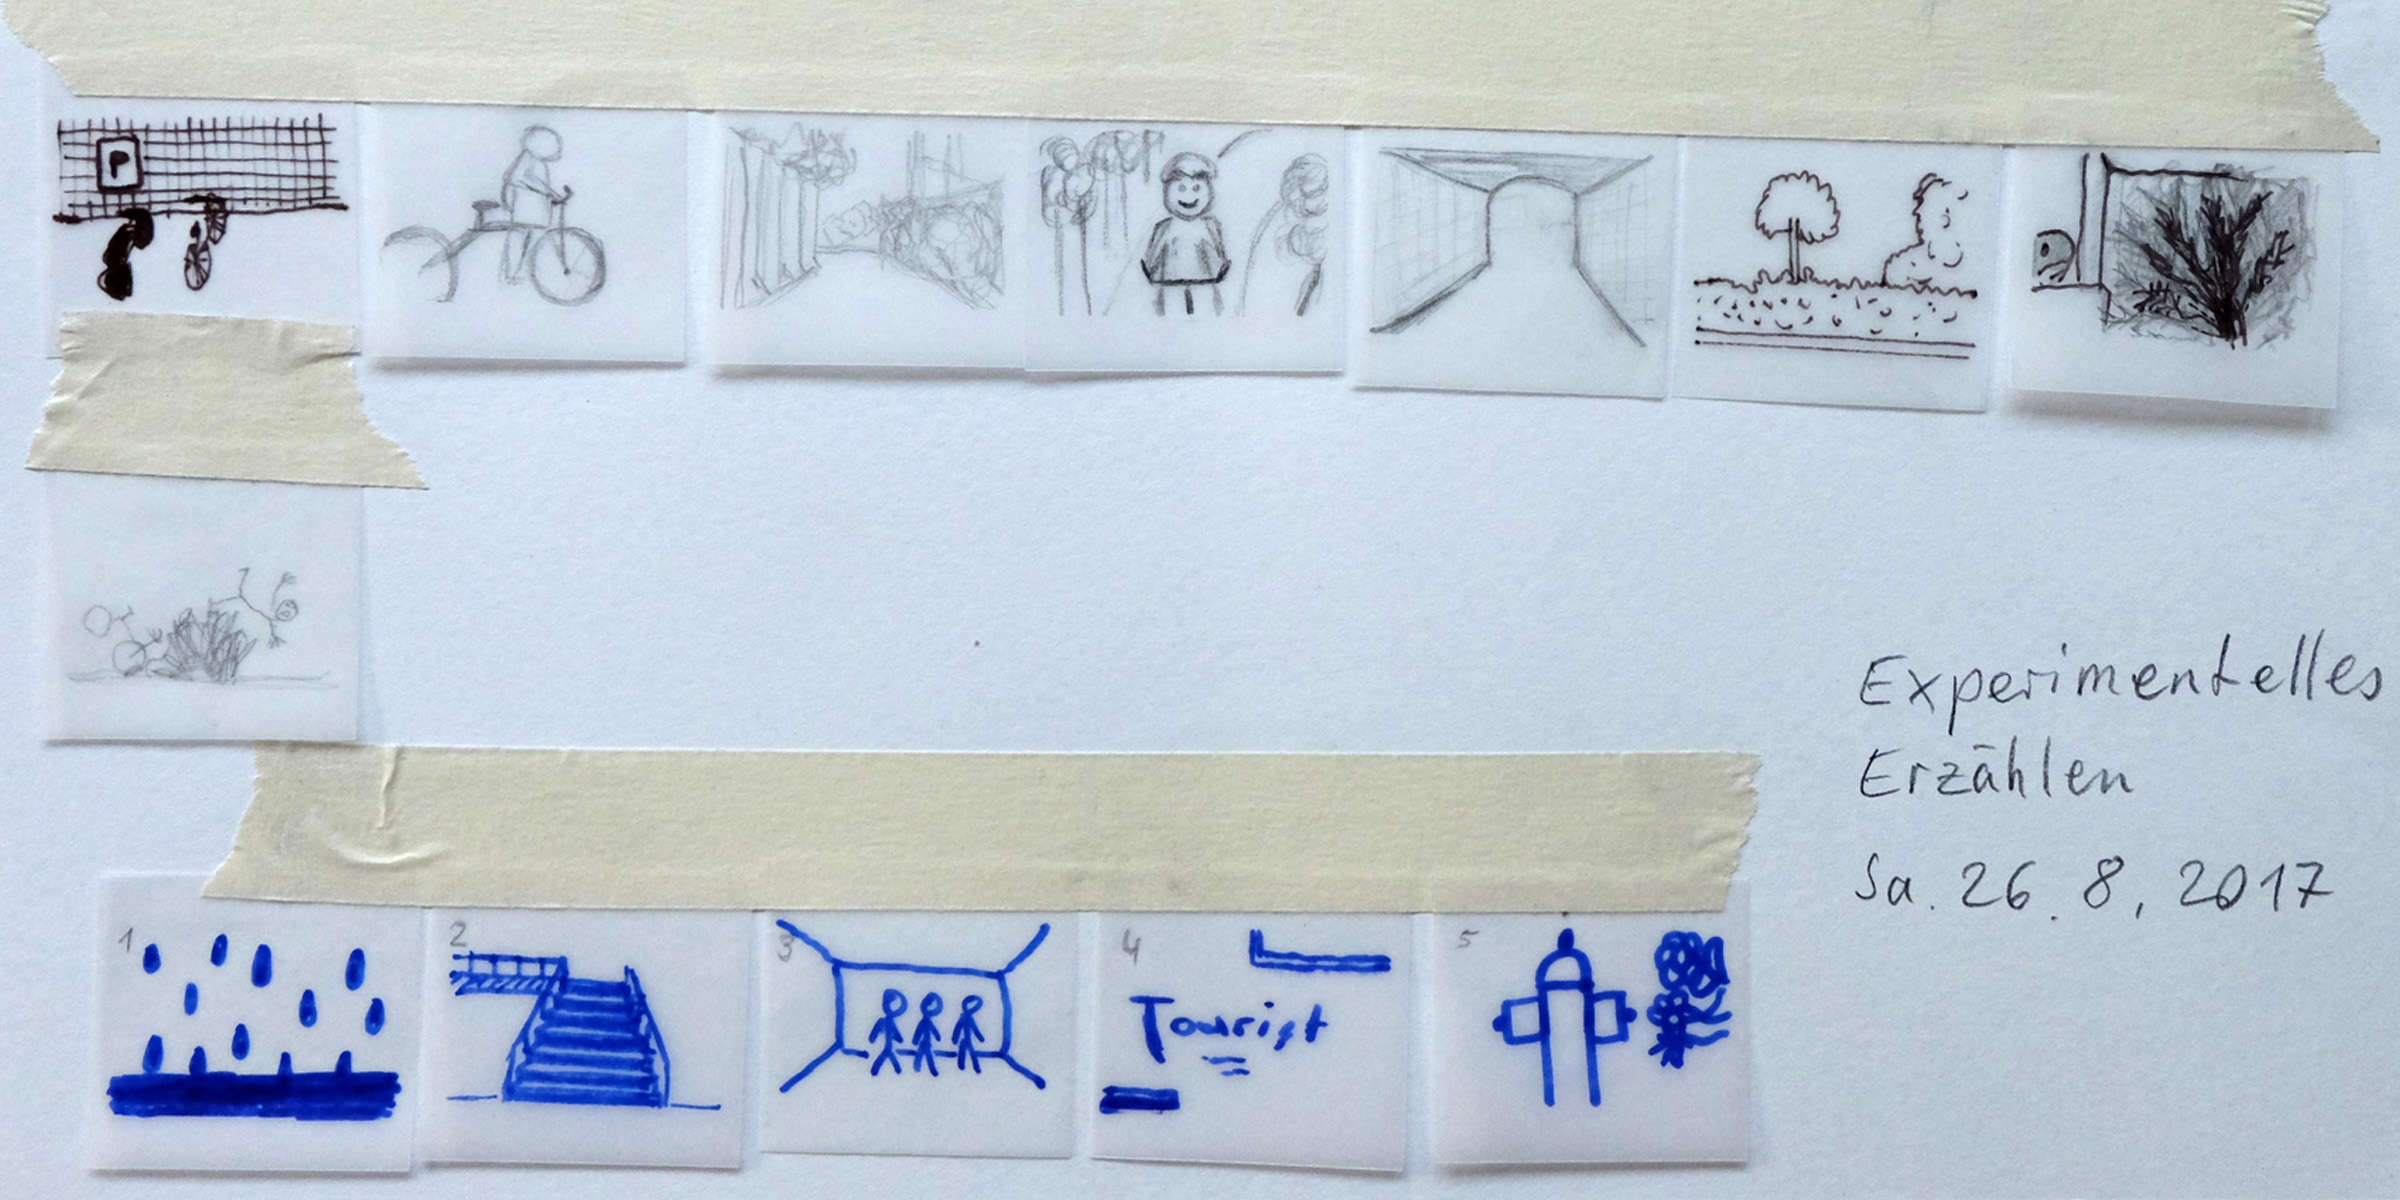 P
Experimentelles
Erzählen
Sa. 26. 8, 2017
1
2
3
4
Tourist
5